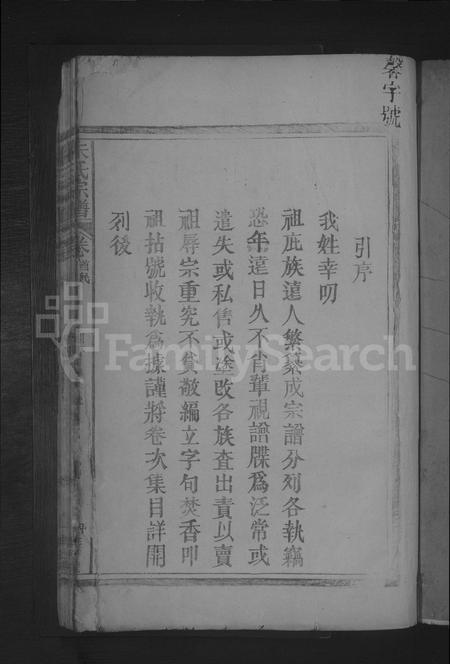 馨字號
引序
我姓幸叨
祖庇族遠人繁纂成宗譜分列各執竊
恐年遠日久不肖輩視譜牒為泛常或
遺失或私售或塗改各族查出責以賣
祖辱宗重究不貸敬編立字句焚香叩
祖拈號收執為據謹將卷次集目詳開
列後
氏宗譜
卷首
FamilySearch